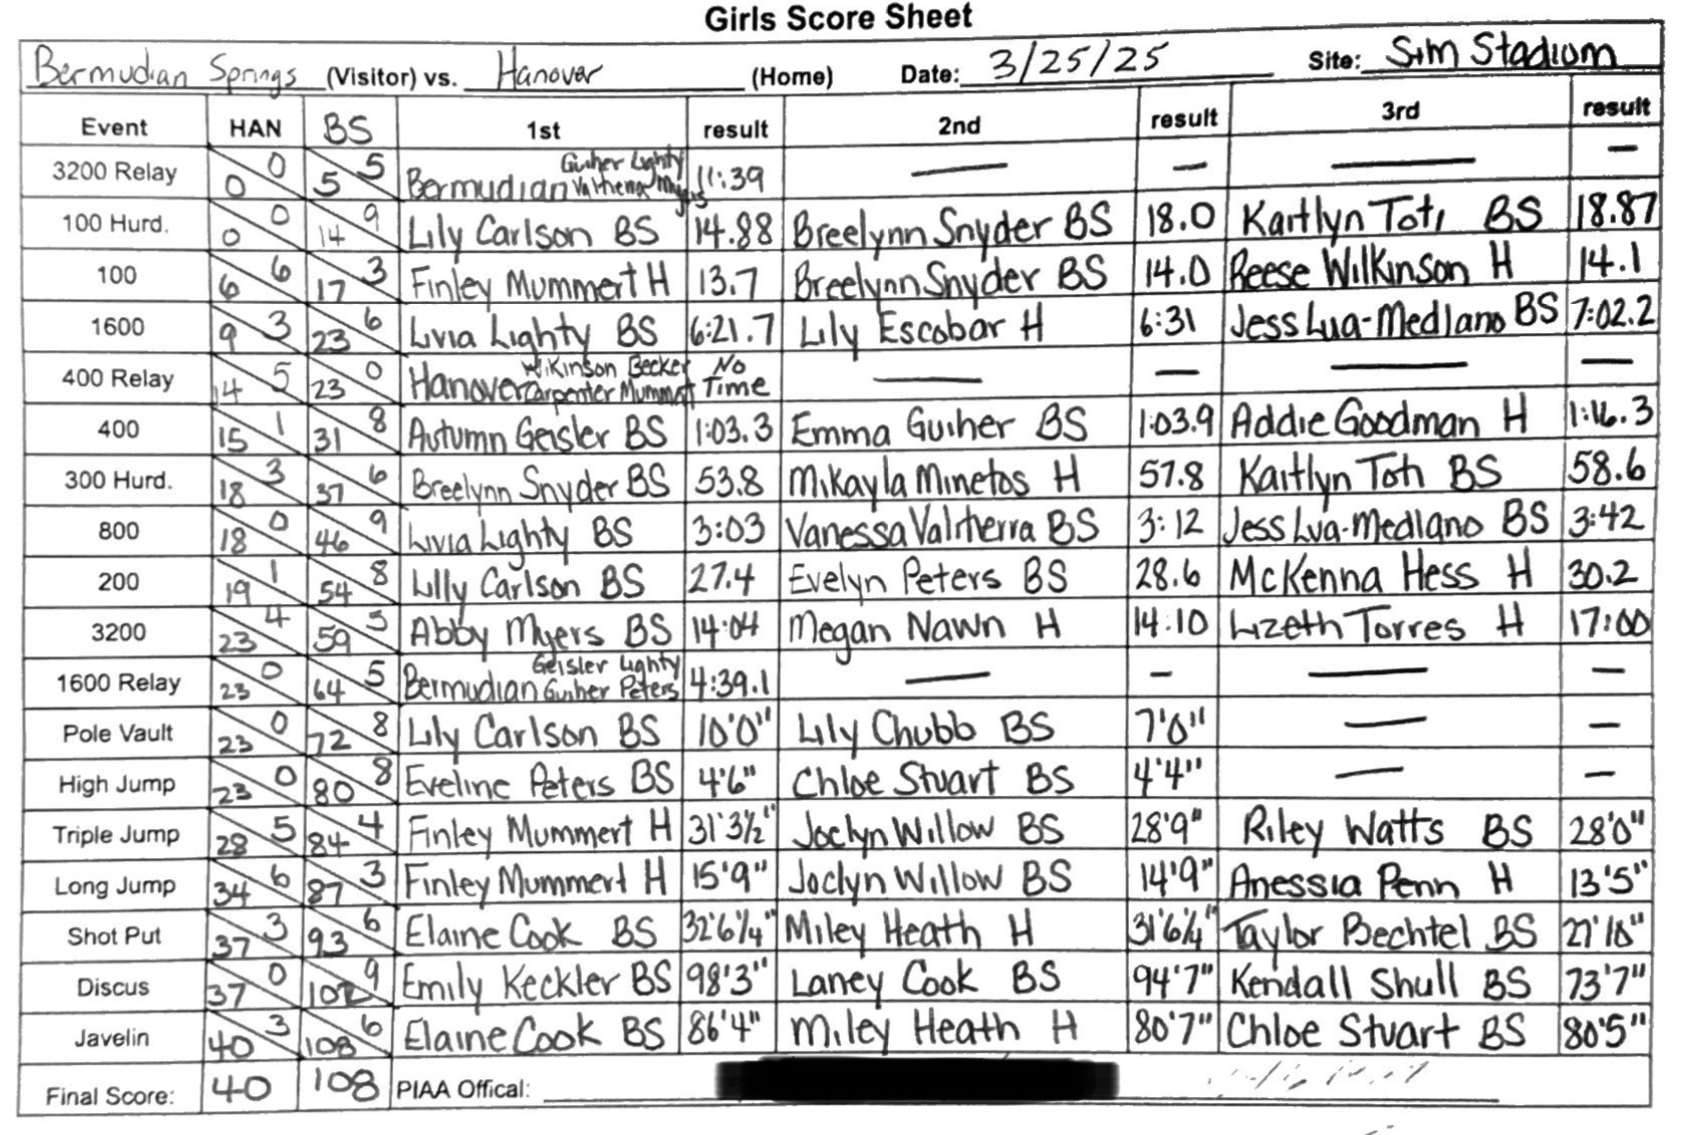 Girls Score Sheet
Bermudian Springs (Visitor) vs. Hanover (Home) Date: 3/25/25 Site: Sim Stadium
Event HAN BS 1st result 2nd result 3rd result
3200 Relay 0 0 5 5 Bermudian Guiher Lighty Valtherra Myers 11:39 — — — —
100 Hurd. 0 0 14 9 Lily Carlson BS 14.88 Breelynn Snyder BS 18.0 Kaitlyn Toti BS 18.87
100 6 6 17 3 Finley Mummert H 13.7 Breelynn Snyder BS 14.0 Reese Wilkinson H 14.1
1600 9 3 23 6 Livia Lighty BS 6:21.7 Lily Escobar H 6:31 Jess Lua-Medlano BS 7:02.2
400 Relay 14 5 23 0 Hanover Wilkinson Becker Carpenter Mummert No Time — — — —
400 15 1 31 8 Autumn Geisler BS 1:03.3 Emma Guiher BS 1:03.9 Addie Goodman H 1:16.3
300 Hurd. 18 3 37 6 Breelynn Snyder BS 53.8 Mikayla Minetos H 57.8 Kaitlyn Toth BS 58.6
800 18 0 46 9 Livia Lighty BS 3:03 Vanessa Valtherra BS 3:12 Jess Lua-Medlano BS 3:42
200 19 1 54 8 Lilly Carlson BS 27.4 Evelyn Peters BS 28.6 McKenna Hess H 30.2
3200 23 4 59 5 Abby Myers BS 14:04 Megan Nawn H 14:10 Lizeth Torres H 17:00
1600 Relay 23 0 64 5 Bermudian Geisler Lighty Guiher Peters 4:39.1 — — — —
Pole Vault 23 0 72 8 Lily Carlson BS 10'0" Lily Chubb BS 7'0" — —
High Jump 23 0 80 8 Eveline Peters BS 4'6" Chloe Stuart BS 4'4" — —
Triple Jump 28 5 84 4 Finley Mummert H 31'3½" Joclyn Willow BS 28'9" Riley Watts BS 28'0"
Long Jump 34 6 87 3 Finley Mummert H 15'9" Joclyn Willow BS 14'9" Anessia Penn H 13'5"
Shot Put 37 3 93 6 Elaine Cook BS 32'6¼" Miley Heath H 31'6¼" Taylor Bechtel BS 27'10"
Discus 37 0 102 9 Emily Keckler BS 98'3" Laney Cook BS 94'7" Kendall Shull BS 73'7"
Javelin 40 3 108 6 Elaine Cook BS 86'4" Miley Heath H 80'7" Chloe Stuart BS 80'5"
Final Score: 40 108 PIAA Offical: